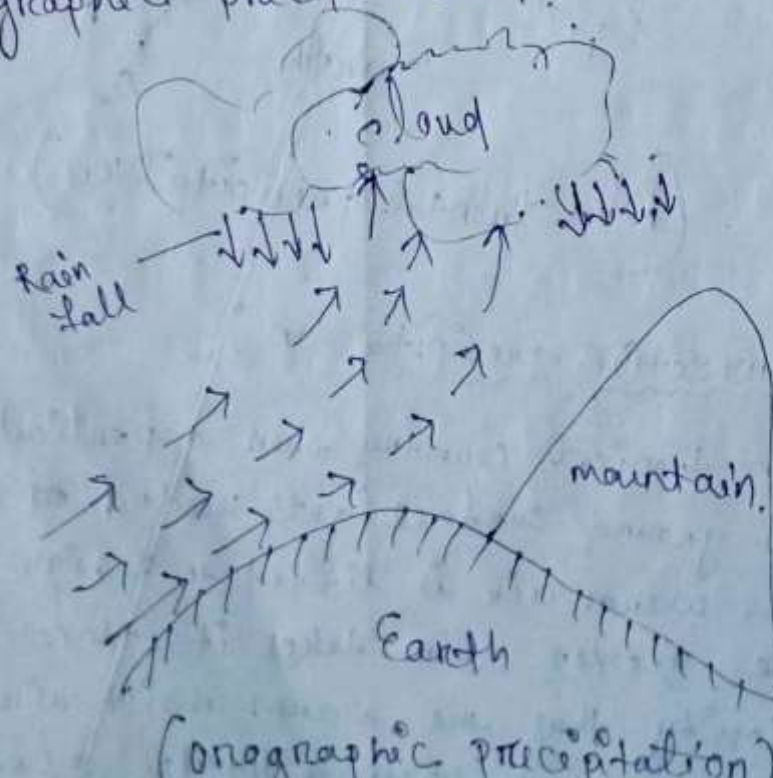 graphic
cloud
Rain
fall
mountain.
Earth
(orographic precipitation)